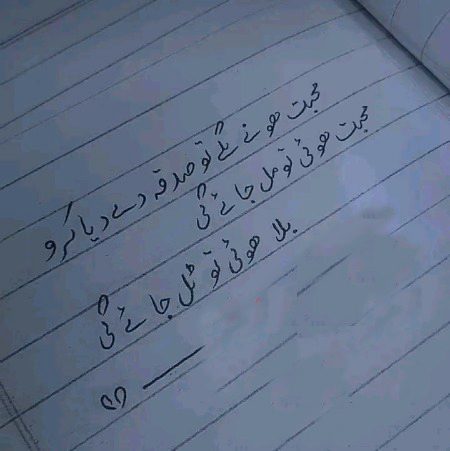 محبت ہونے لگے تو صدقہ دے دیا کرو
محبت ہوئی تو مل جائے گی
بلا ہوئی تو ٹل جائے گی